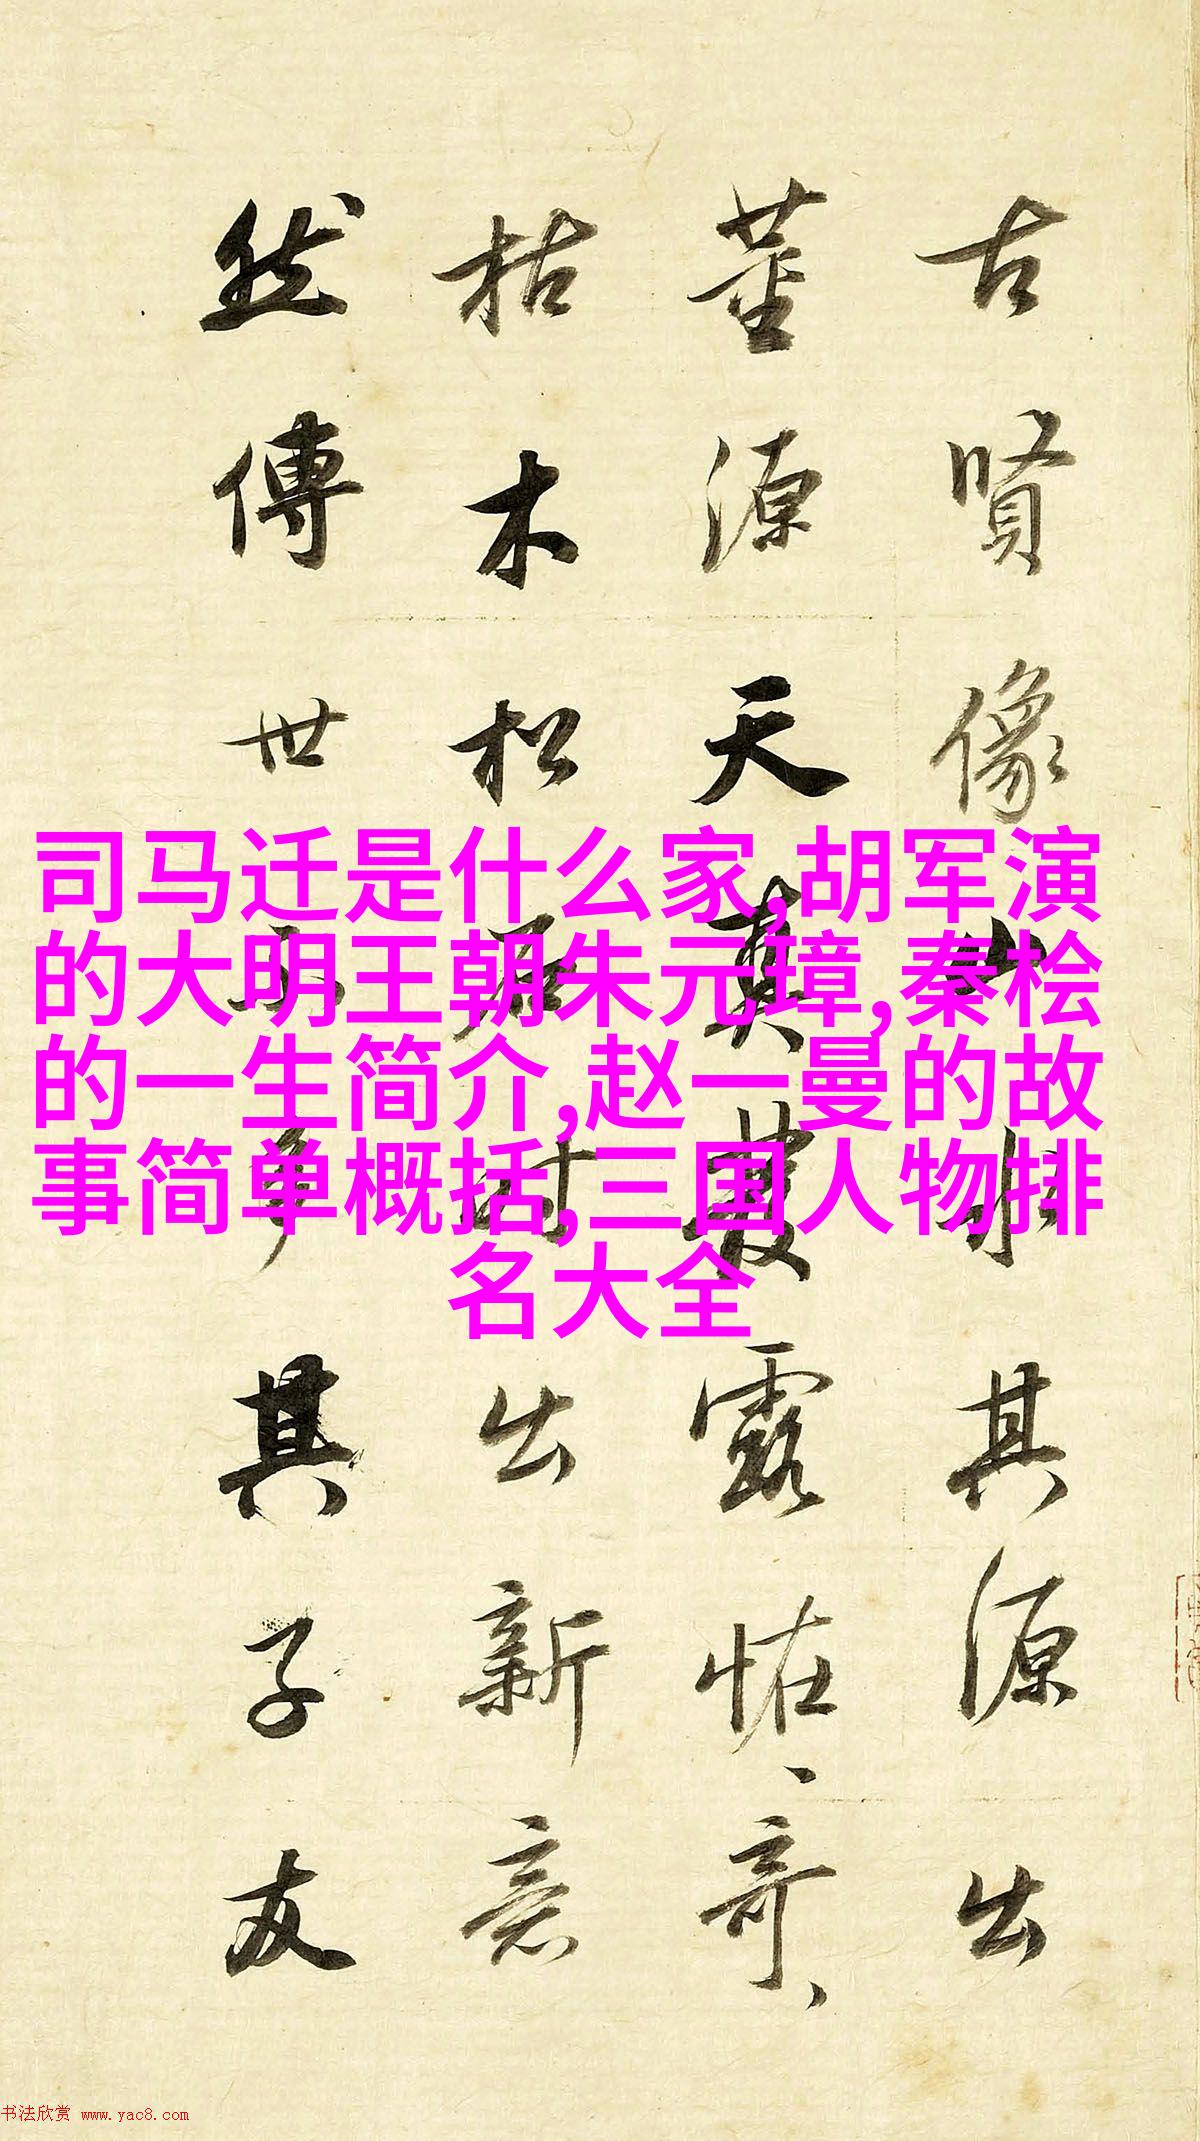 古賢像山水其源出
董源天真叢露恠奇
枯木松石時出新意
然傳世不多其子友
司马迁是什么家,胡军演
的大明王朝朱元璋,秦桧
的一生简介,赵一曼的故
事简单概括,三国人物排
名大全
书法欣赏 www.yac8.com